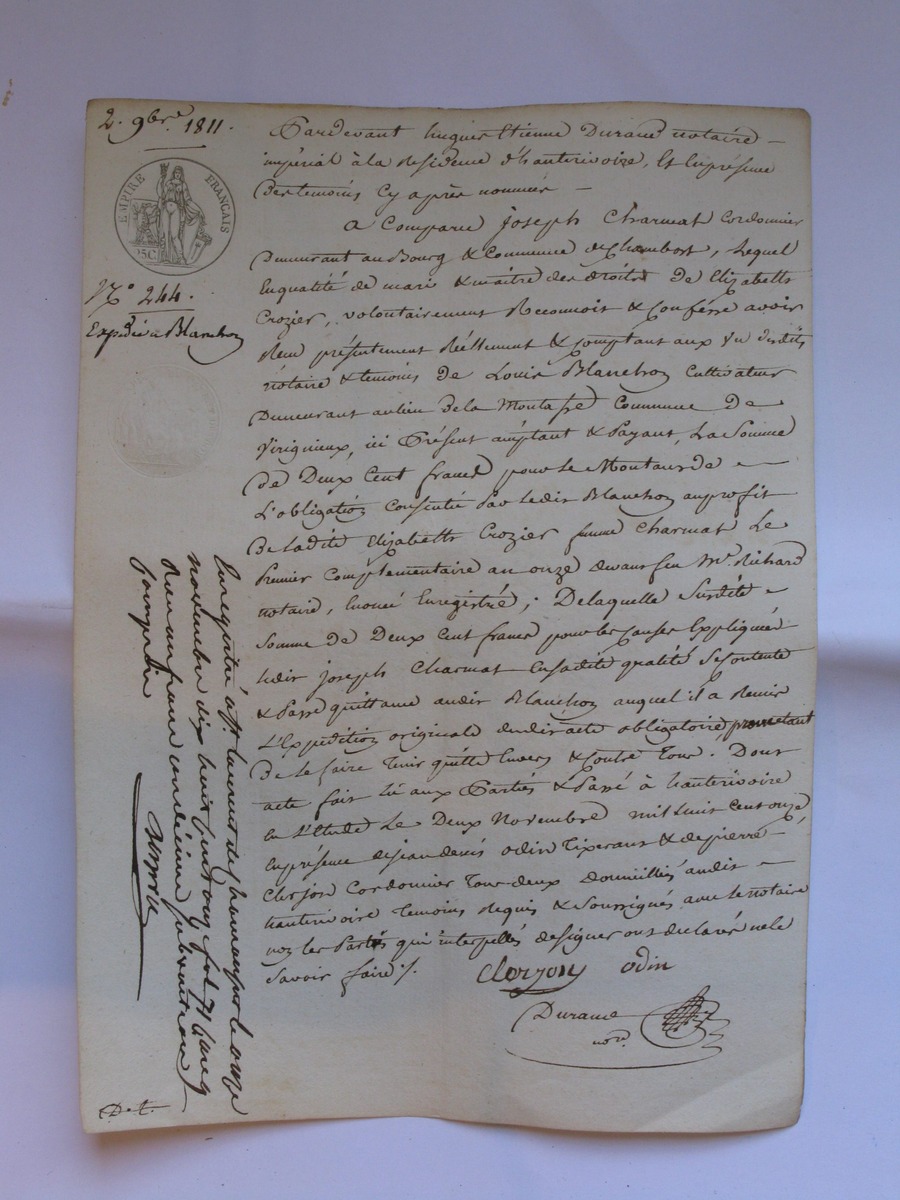 2. 9bre 1811.
EMPIRE FRANÇAIS
25C
N° 244.
Expédié a Blanchon
Pardevant hugues Etienne Durand notaire
impérial à la residence d'hauterivoire, Et En présence
Des temoins Cy après nommés
a Comparu Joseph Charmat Cordonnier
Demeurant au Bourg & Commune de Chambost, Lequel
En qualité de mari & maître des droits de Elizabeth
Crozier, volontairement Reconnoit & Confésse avoir
Reçu présentement Réellement & Comptant aux Vu desdits
notaire & temoins de Louis Blanchon Cultivateur
Demeurant au lieu de la Commune de
Virignieux, ici Présent acceptant & Payant, La Somme
de Deux Cent francs pour le Montant de
L'obligation Consentie Par ledit Blanchon au profit
De Ladite Elizabeth Crozier femme Charmat Le
Premier Complémentaire an onze devant feu Me. Richard
notaire, Enoncé Enregistré; De laquelle Susdite
Somme de Deux Cent francs pour les Causes Expliquées
ledit Joseph Charmat En sadite qualité Se Contente
& Passe quittance audit Blanchon auquel il a Remis
L'Expédition originale dudit acte obligatoire, promettant
De le faire tenir quitte Envers & Contre Tous. Dont
acte fait Lu aux Parties & Passé à hauterivoire
En L'Etude Le Deux Novembre mil huit Cent onze
En présence de jean denis odin Tixerant & de pierre
Clerjon Cordonnier Tous deux Domiciliés audit
hauterivoire Temoins Requis & Soussignés avec le notaire
non les Parties qui interpellés de signer ont déclarés ne le
Savoir faire ./.
Clerjon odin
Durand
nore.
Enregistré à St. Laurent de Chamousset le onze
novembre dix huit cent onze fol. 71
Reçu un franc dix centimes subvention
comprise
D. t.